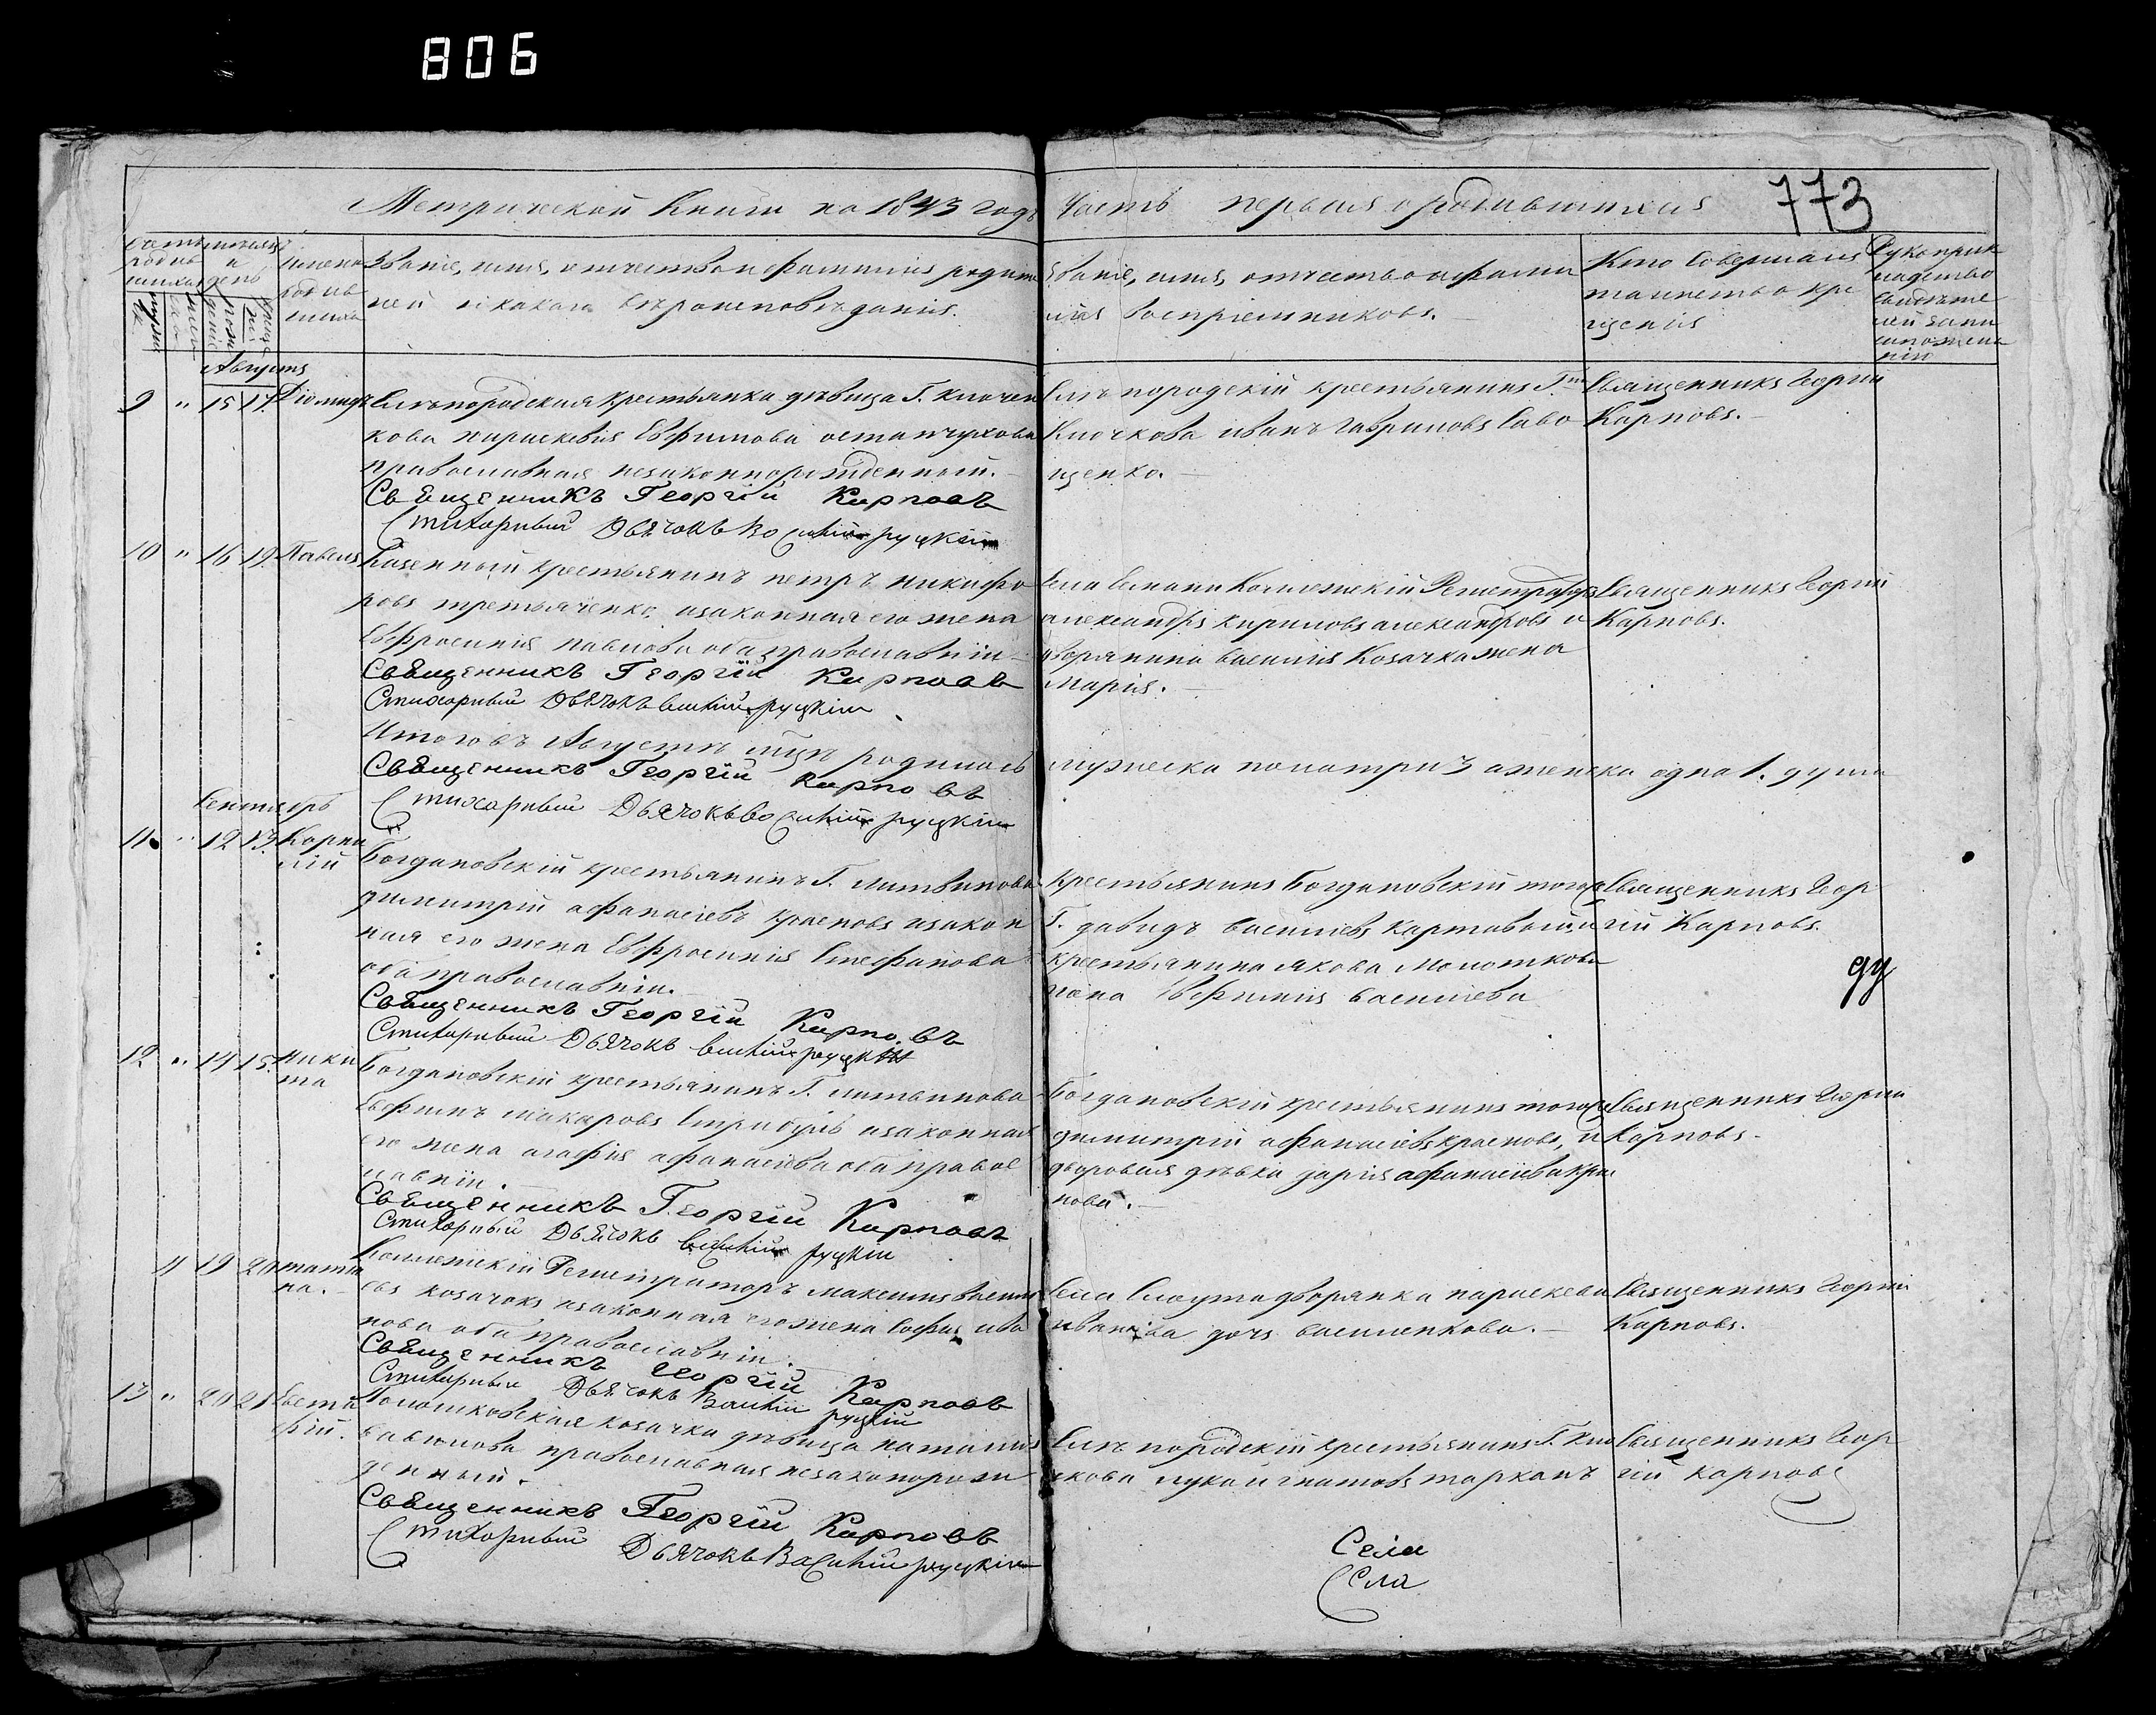 806
773
Метрической Книги на 1843 годъ Часть первая о родившихся
Счетъ родившихся
мѣсяцъ и день
Имена родившихся
Званіе, имя, отчество и фамилія родите
лей и какого вѣроисповѣданія.
Званіе, имя, отчество и фами
лія воспріемниковъ.
Кто совершалъ
таинство кре
щенія
Рукоприк
ладство
свидѣте
лей
Августъ
9 " 15 17 Діомидъ
кова Параскевія Евфимова
православная незаконнорожденный.
Священникъ Георгій Карповъ
Стихарный Дьячокъ Василій Руцкій
крестьянинъ Г.
Клочкова Иванъ Гавриловъ Саво
щенко.
Священникъ Георгій
Карповъ.
10 " 16 19 Павелъ
Казенный крестьянинъ Петръ Никифо
ровъ Третьяченко, изаконная его жена
Евфросинія Павлова оба православніи
Священникъ Георгій Карповъ
Стихарный Дьячокъ Василій Руцкій
Села Коллежскій Регистраторъ
Александръ Кириловъ Александровъ и
дворянина Василія Козачка жена
Марія.
Священникъ Георгій
Карповъ.
Итого въ Августѣ мцѣ родилось мужеска пола три 3 а женска одна 1. душа
Священникъ Георгій Карповъ
Стихарный Дьячокъ Василій Руцкій
Сентябрь
11. " 12 13. Корни
лій
Богдановскій крестьянинъ Г. Литвинова
Димитрій Афанасіевъ Красновъ изакон
ная его жена Евфросинія Стефанова
оба православніи.
Священникъ Георгій Карповъ
Стихарный Дьячокъ Василій Руцкій
Крестьянинъ Богдановскій тогоже
Г. Давидъ Василіевъ Картавый, и
крестьянина Якова Молоткова
жена Евфимія Василіева
Священникъ Геор
гій Карповъ.
12 " 14 15. Ники
та
Богдановскій крестьянинъ Г. Литвинова
Евфимъ Макаровъ изаконная
его жена Агафія Афанасіева оба правос
лавніи.
Священникъ Георгій Карповъ
Стихарный Дьячокъ Василій Руцкій
Богдановскій крестьянинъ тогоже
Димитрій Афанасіевъ Красновъ, и
дворовая дѣвка Дарія Афанасіева Крас
нова.
Священникъ Георгій
Карповъ.
" 19 20 Татіа
на.
Коллежскій Регистраторъ Максимъ Василі
евъ Козачокъ изаконная его жена Софія Ива
нова оба православніи.
Священникъ Георгій Карповъ
Стихарный Дьячокъ Василій Руцкій
Села Слоута дворянка Параскева
Иванова дочь Василенкова.
Священникъ Георгій
Карповъ.
13 " 20 21 Евста
фій.
козачка дѣвица Наталія
Савлюкова православная незаконорож
денный.
Священникъ Георгій Карповъ
Стихарный Дьячокъ Василій Руцкій
крестьянинъ Г. Кло
чкова Лука Игнатовъ Тарканъ
Священникъ Геор
гій Карповъ
Села